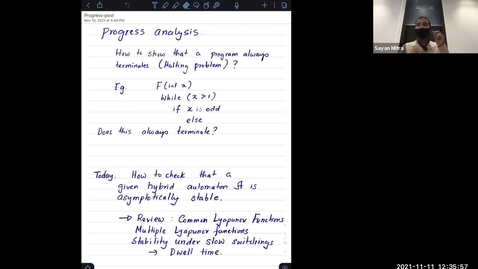 Progress-post
Nov 10, 2021 at 5:44 PM
Progress analysis.
How to show that a program always
terminates (Halting problem)?
Eg. F(int x)
while (x>1)
if x is odd
else
Does this always terminate?
Today. How to check that a
given hybrid automaton A is
asymptotically stable.
→ Review: Common Lyapunov Functions
Multiple Lyapunov functions
Stability under slow switchings.
→ Dwell time.
Sayan Mitra
2021-11-11 12:35:57